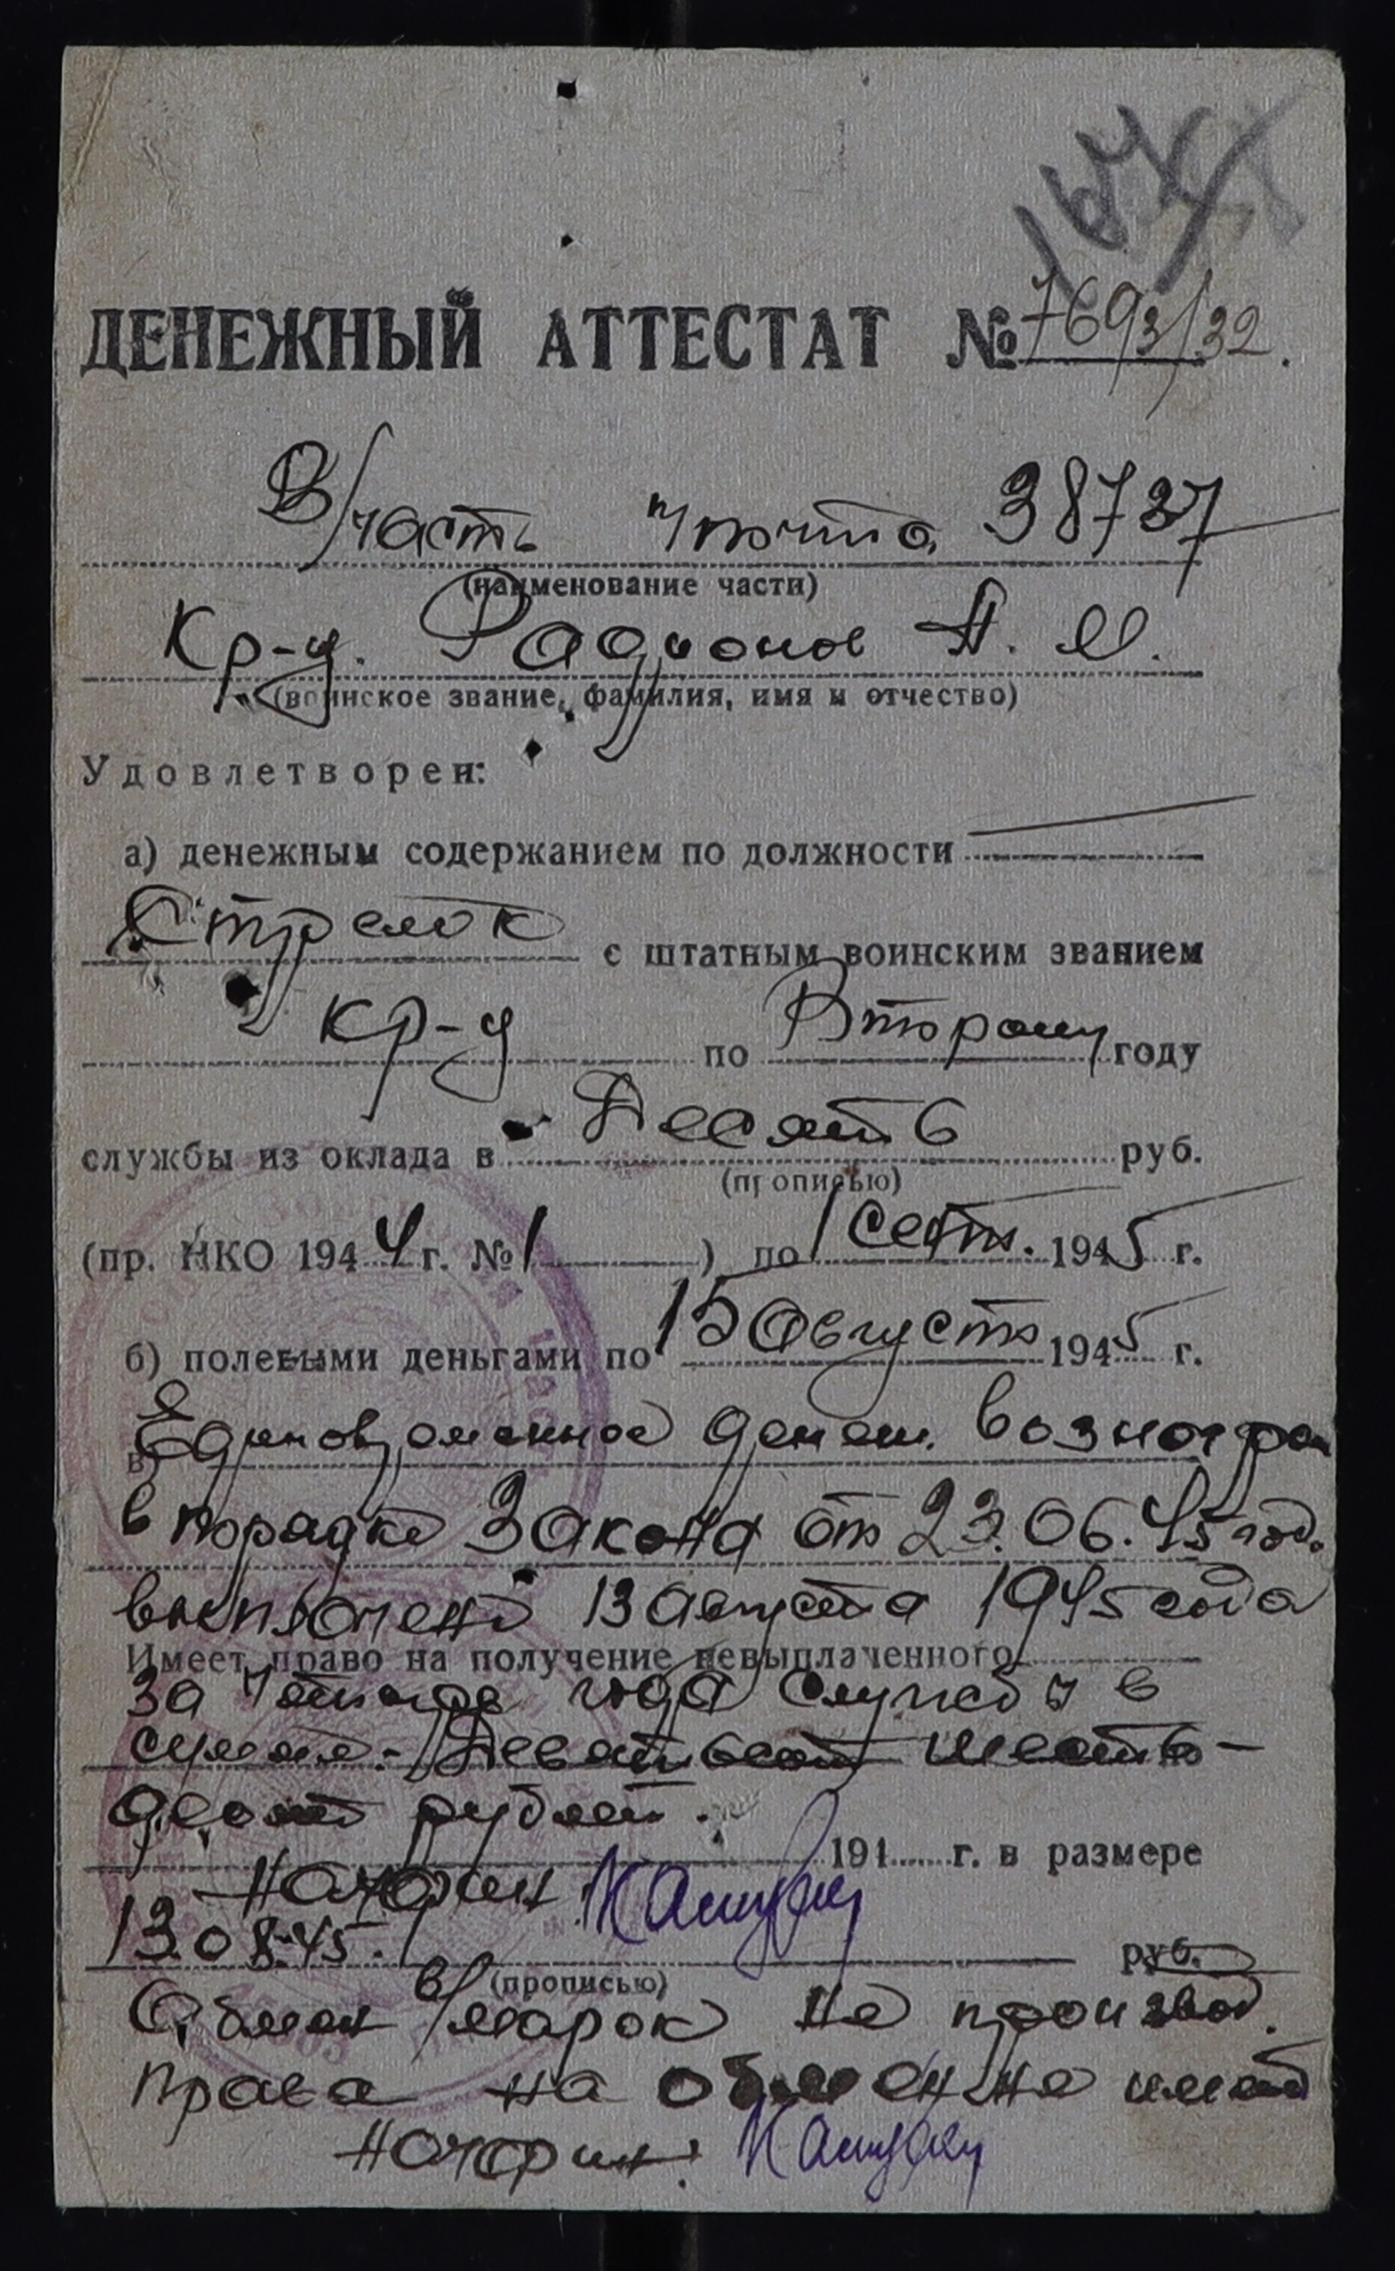 ДЕНЕЖНЫЙ АТТЕСТАТ № 7693/32.
В/часть п/почта 38737
(наименование части)
Кр-ц. Радионов А. И.
(воинское звание, фамилия, имя и отчество)
Удовлетворен:
а) денежным содержанием по должности
Стрелок с штатным воинским званием
кр-ц по Второму году
службы из оклада в Десять руб.
(прописью)
(пр. НКО 1944 г. № 1 ) по 1 сент. 1945 г.
б) полевыми деньгами по 15 августа 1945 г.
в) Единовременное денеж. вознагр
в порядке Закона от 23.06.45 год.
выплочено 13 августа 1945 года
Имеет право на получение невыплаченного
за года службы в
сумме: Девятьсот шесть-
десят рублей.
194 г. в размере
Начфин
13.08.45. руб.
(прописью)
Обмен в/марок не производ.
Права на обмен не имеет
Начфин.